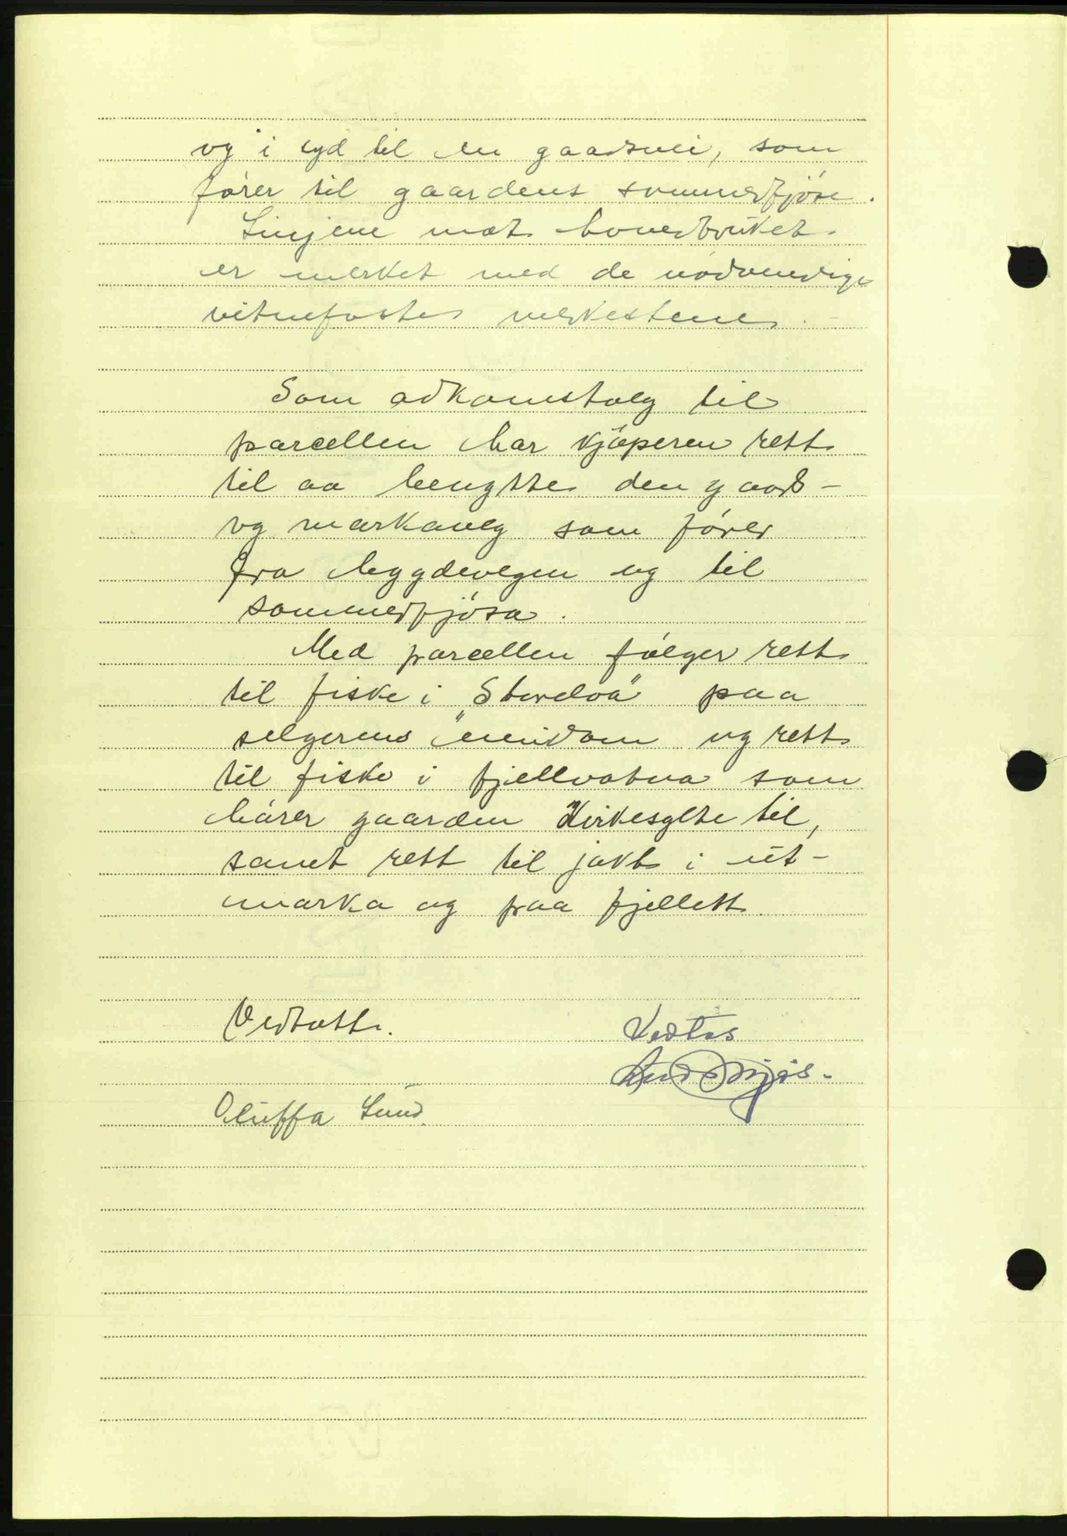 og i syd til en gaardsvei, som
fører til gaardens sommerfjøse.
Linjene mot hovedbruket
er merket med de nødvendige
vitnefaste merkestene. –
Som adkomstveg til
parcellen har kjøperen rett
til aa benytte den gaards-
og markaveg som fører
fra bygdevegen og til
sommerfjøsa.
Med parcellen følger rett
til fiske i "Storelva" paa
selgerens eiendom og rett
til fiske i fjellvatna som
hører gaarden Kirkesylte til,
samt rett til jakt i ut-
marka og paa fjellett.
Vedtatt. Vedtas
Oluffa Lund.